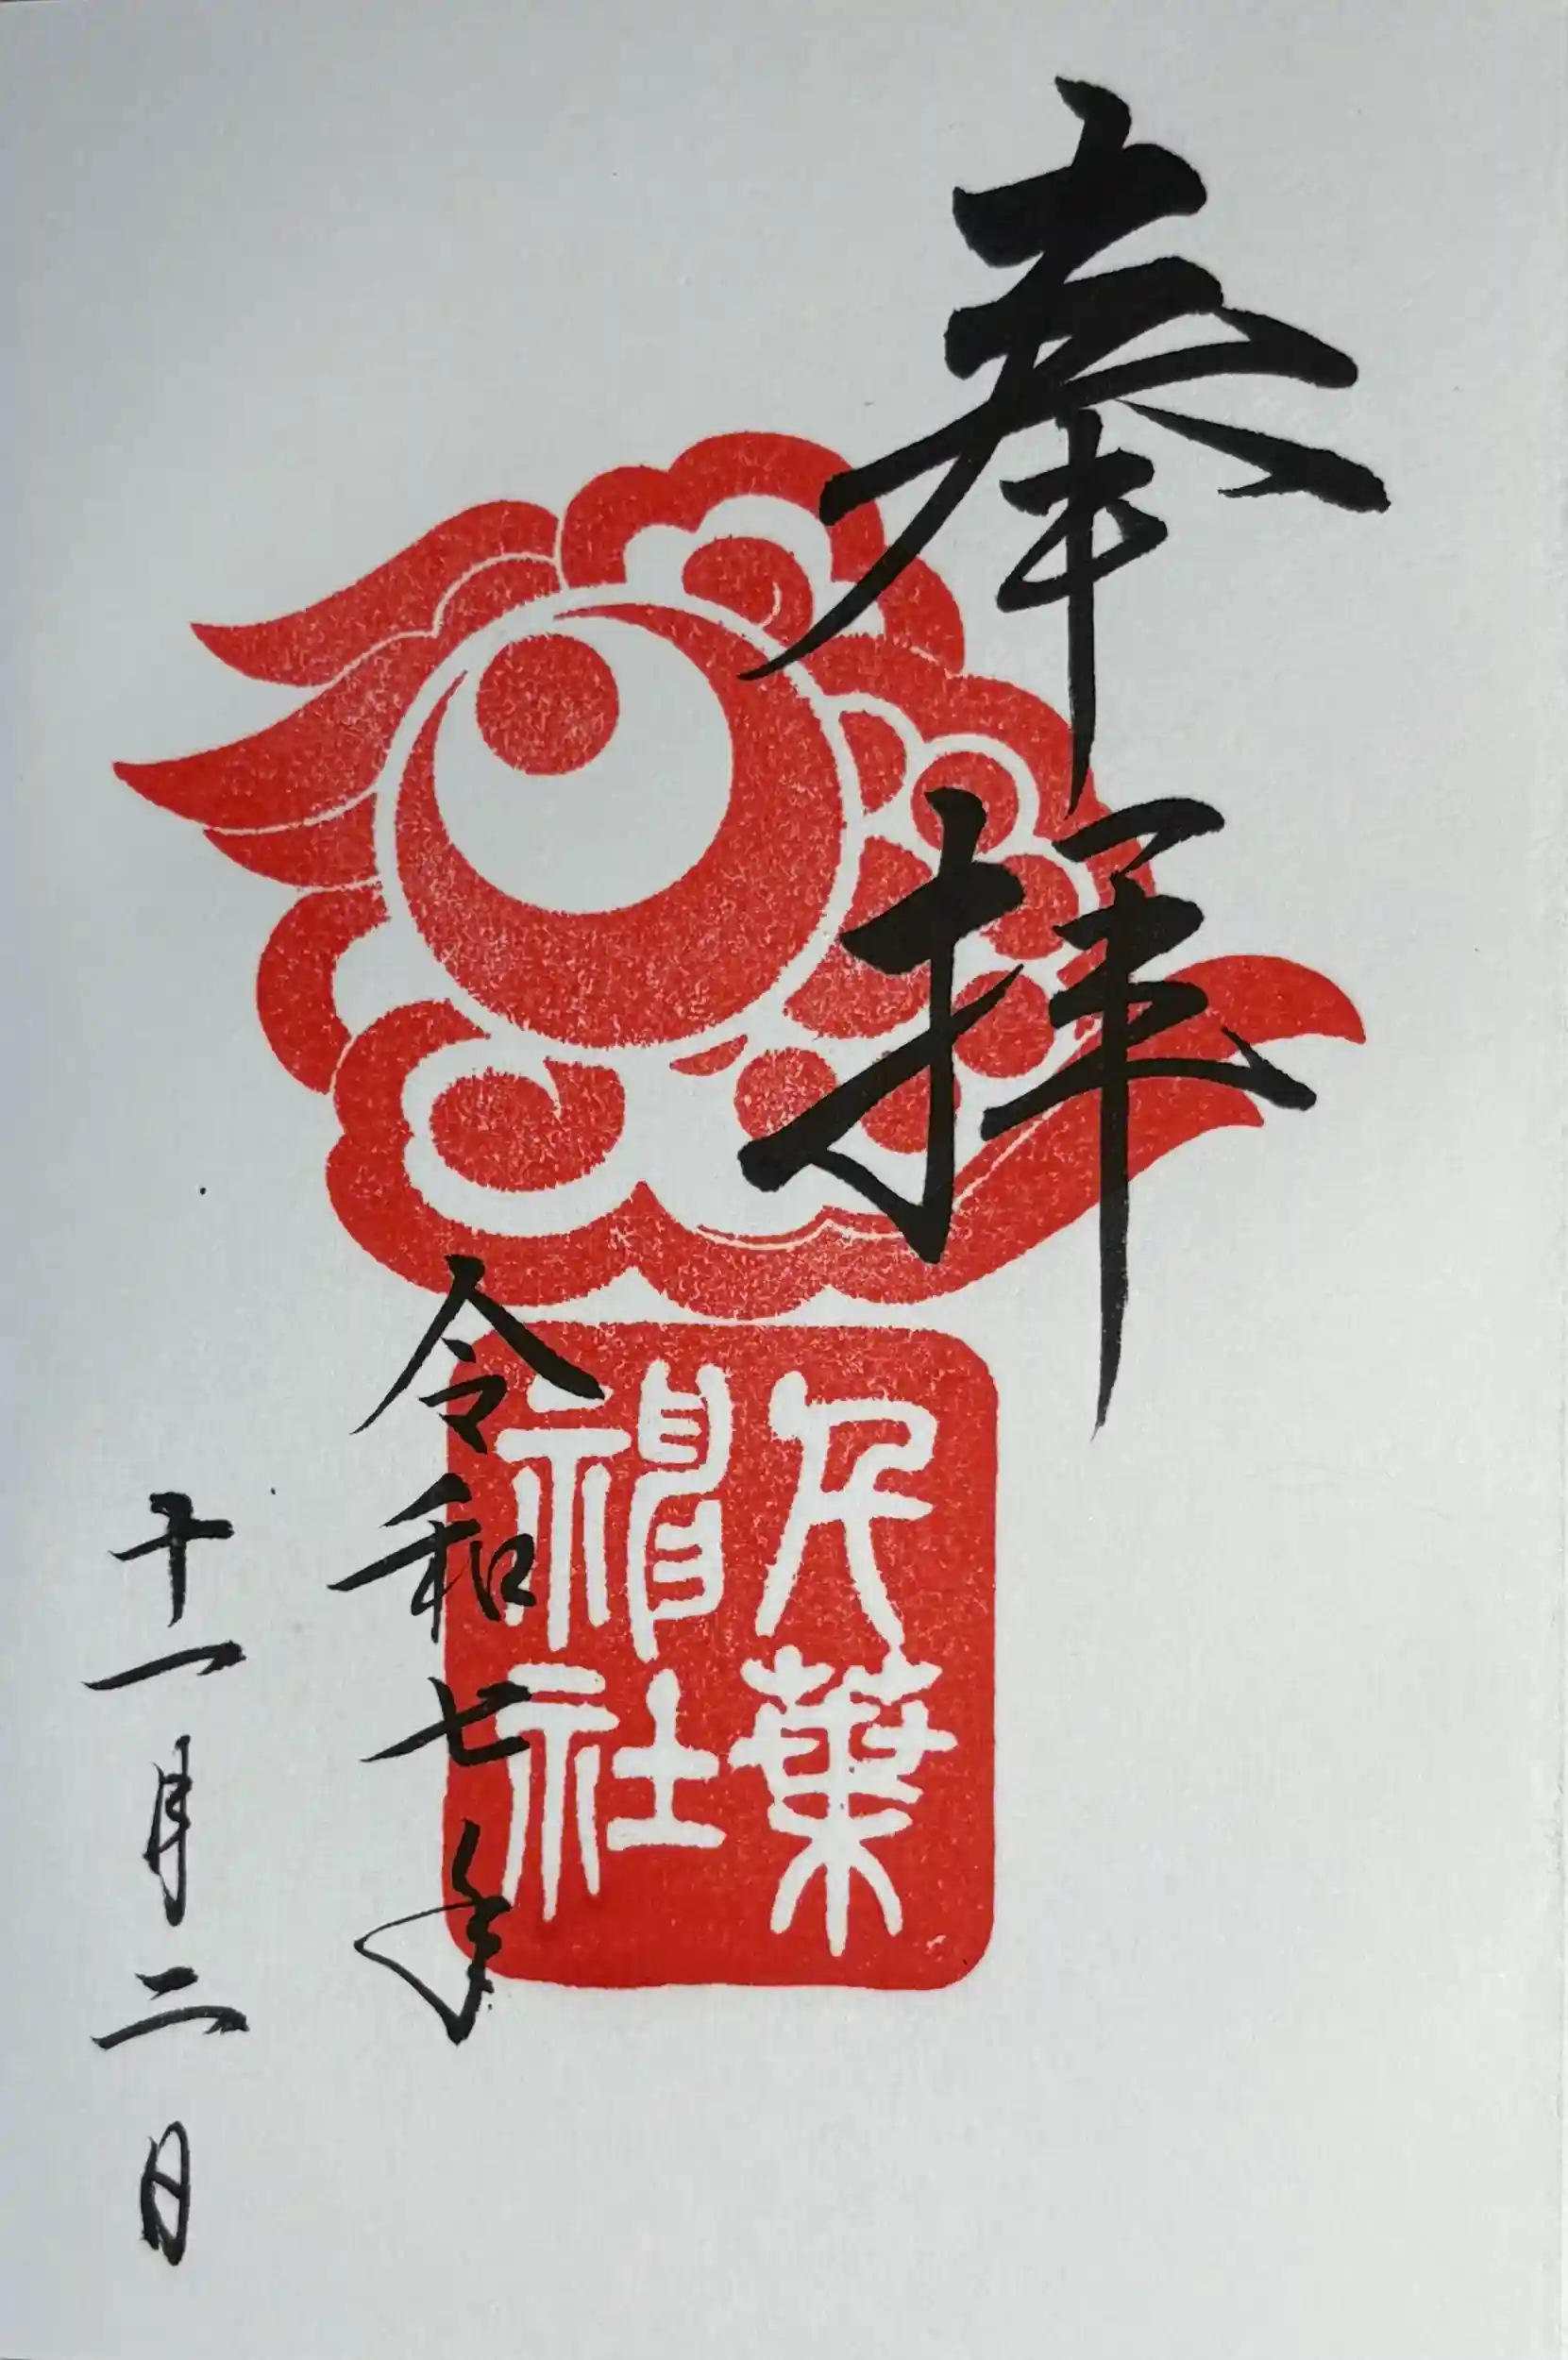 奉拝
千葉
神社
令和七年
十一月二日